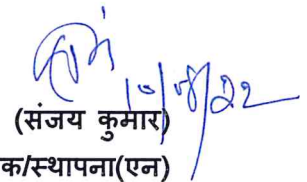 10/08/22
(संजय कुमार)
क/स्थापना(एन)